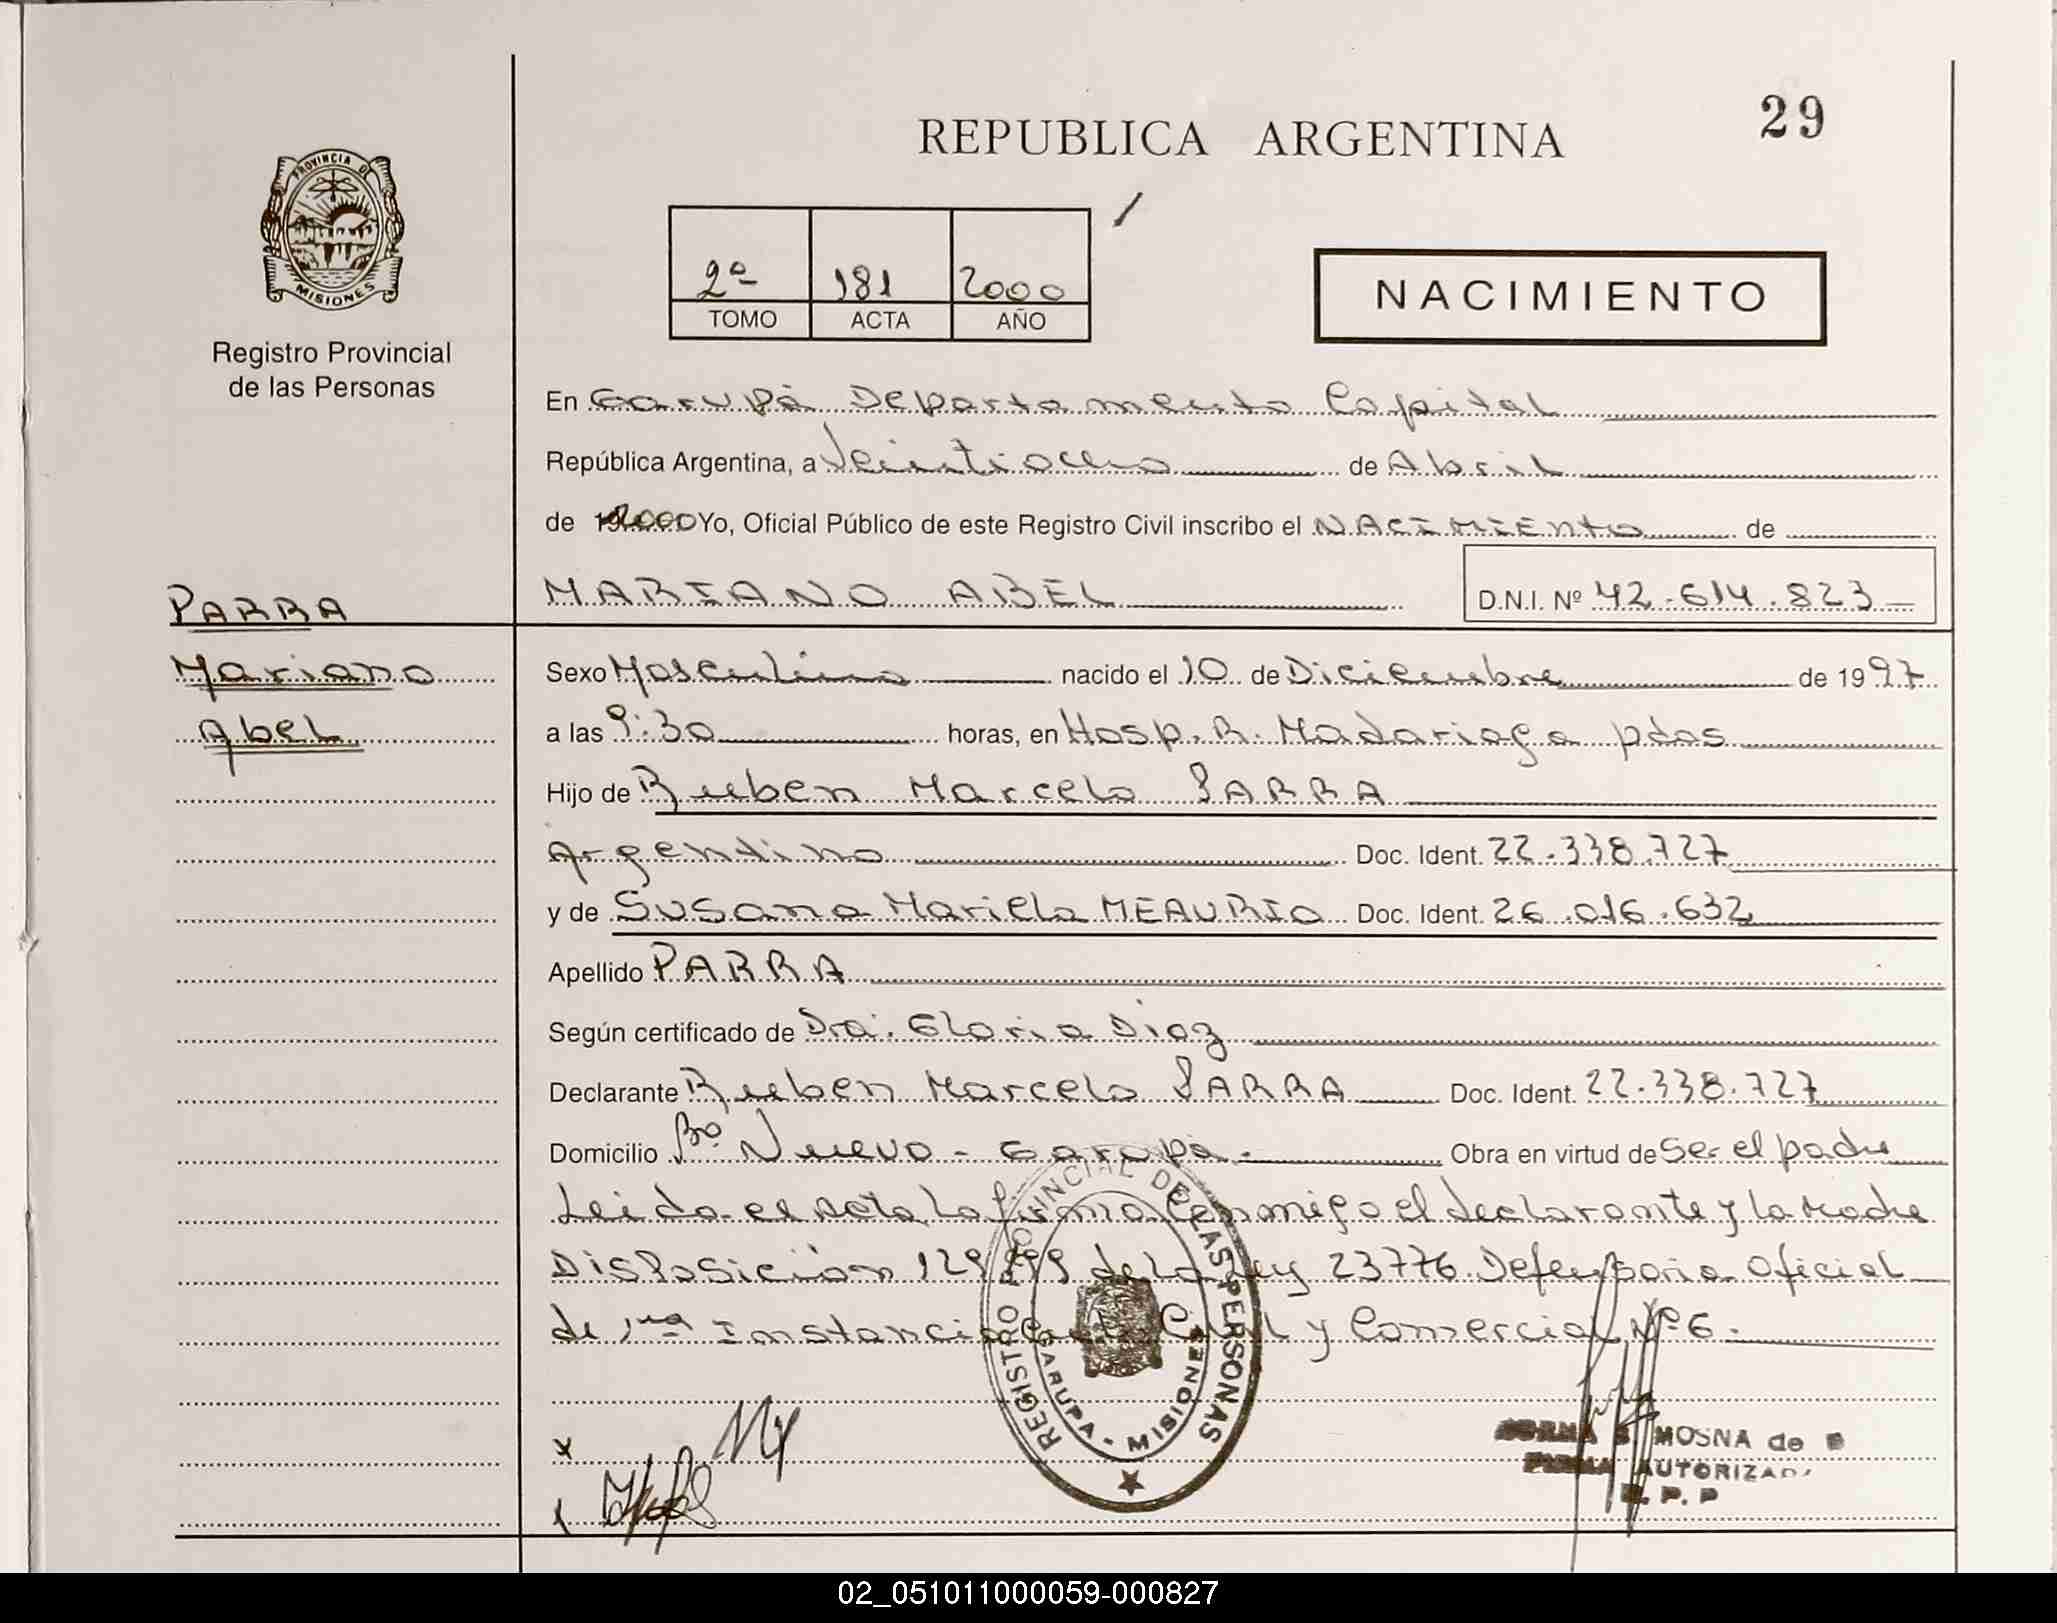 29
REPUBLICA ARGENTINA
PROVINCIA DE
MISIONES
Registro Provincial
de las Personas
2º 181 2000
TOMO ACTA AÑO
NACIMIENTO
En Garupá Departamento Capital
República Argentina, a Veintiocho de Abril
de 2000 Yo, Oficial Público de este Registro Civil inscribo el NACIMIENTO de
MARIANO ABEL D.N.I. Nº 42.614.823
PARRA
Mariano
Abel
Sexo Masculino nacido el 10 de Diciembre de 1997
a las 9:30 horas, en Hosp. R. Madariaga pdas
Hijo de Ruben Marcelo PARRA
Argentino Doc. Ident. 22.338.727
y de Susana Mariela MEAURIO Doc. Ident. 26.016.632
Apellido PARRA
Según certificado de Dra. Gloria Diaz
Declarante Ruben Marcelo PARRA Doc. Ident. 22.338.727
Domicilio Bº Nuevo - Garupá. Obra en virtud de Ser el padre
Leida el Acta La firma Conmigo el declarante y la Madre
Disposición 129/99 de La Ley 23776 Defensoria Oficial
de 1ra Instancia Civil y Comercial Nº 6.
REGISTRO PROVINCIAL DE LAS PERSONAS
GARUPA - MISIONES
MOSNA de
FIRMA AUTORIZADA
R. P. P
02_051011000059-000827